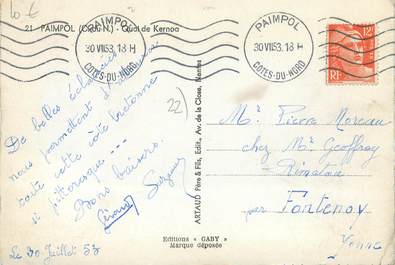 10 €
21 - PAIMPOL (C.-du-N.) - Quai de Kernoa
PAIMPOL
30 VII 53. 18 H
COTES-DU-NORD
PAIMPOL
30 VII 53. 18 H
COTES-DU-NORD
12F
RF
22)
De belles éclaircies
nous permettent d'
toute cette côte bretonne
si pittoresque ---
Bons baisers.
Le 30 Juillet 53
ARTAUD Père & Fils, Edit., Av. de la Close, Nantes
Editions « GABY »
Marque déposée
Mr Pierre Moreau
chez Mr Geoffroy
par Fontenoy
Yonne